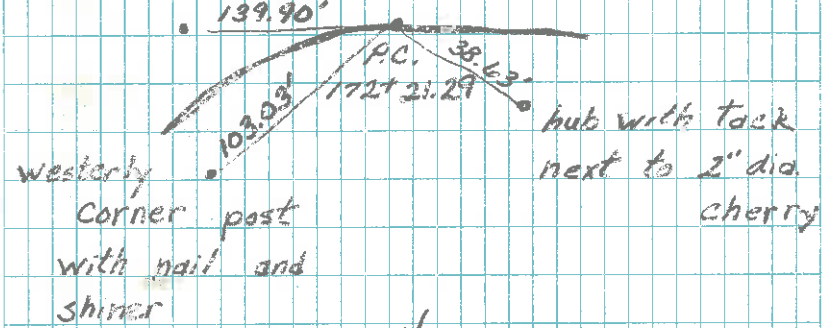 139.90'
P.C.
172+21.29
38.63'
103.03'
hub with tack
next to 2" dia.
cherry
westerly
corner post
with nail and
shiner